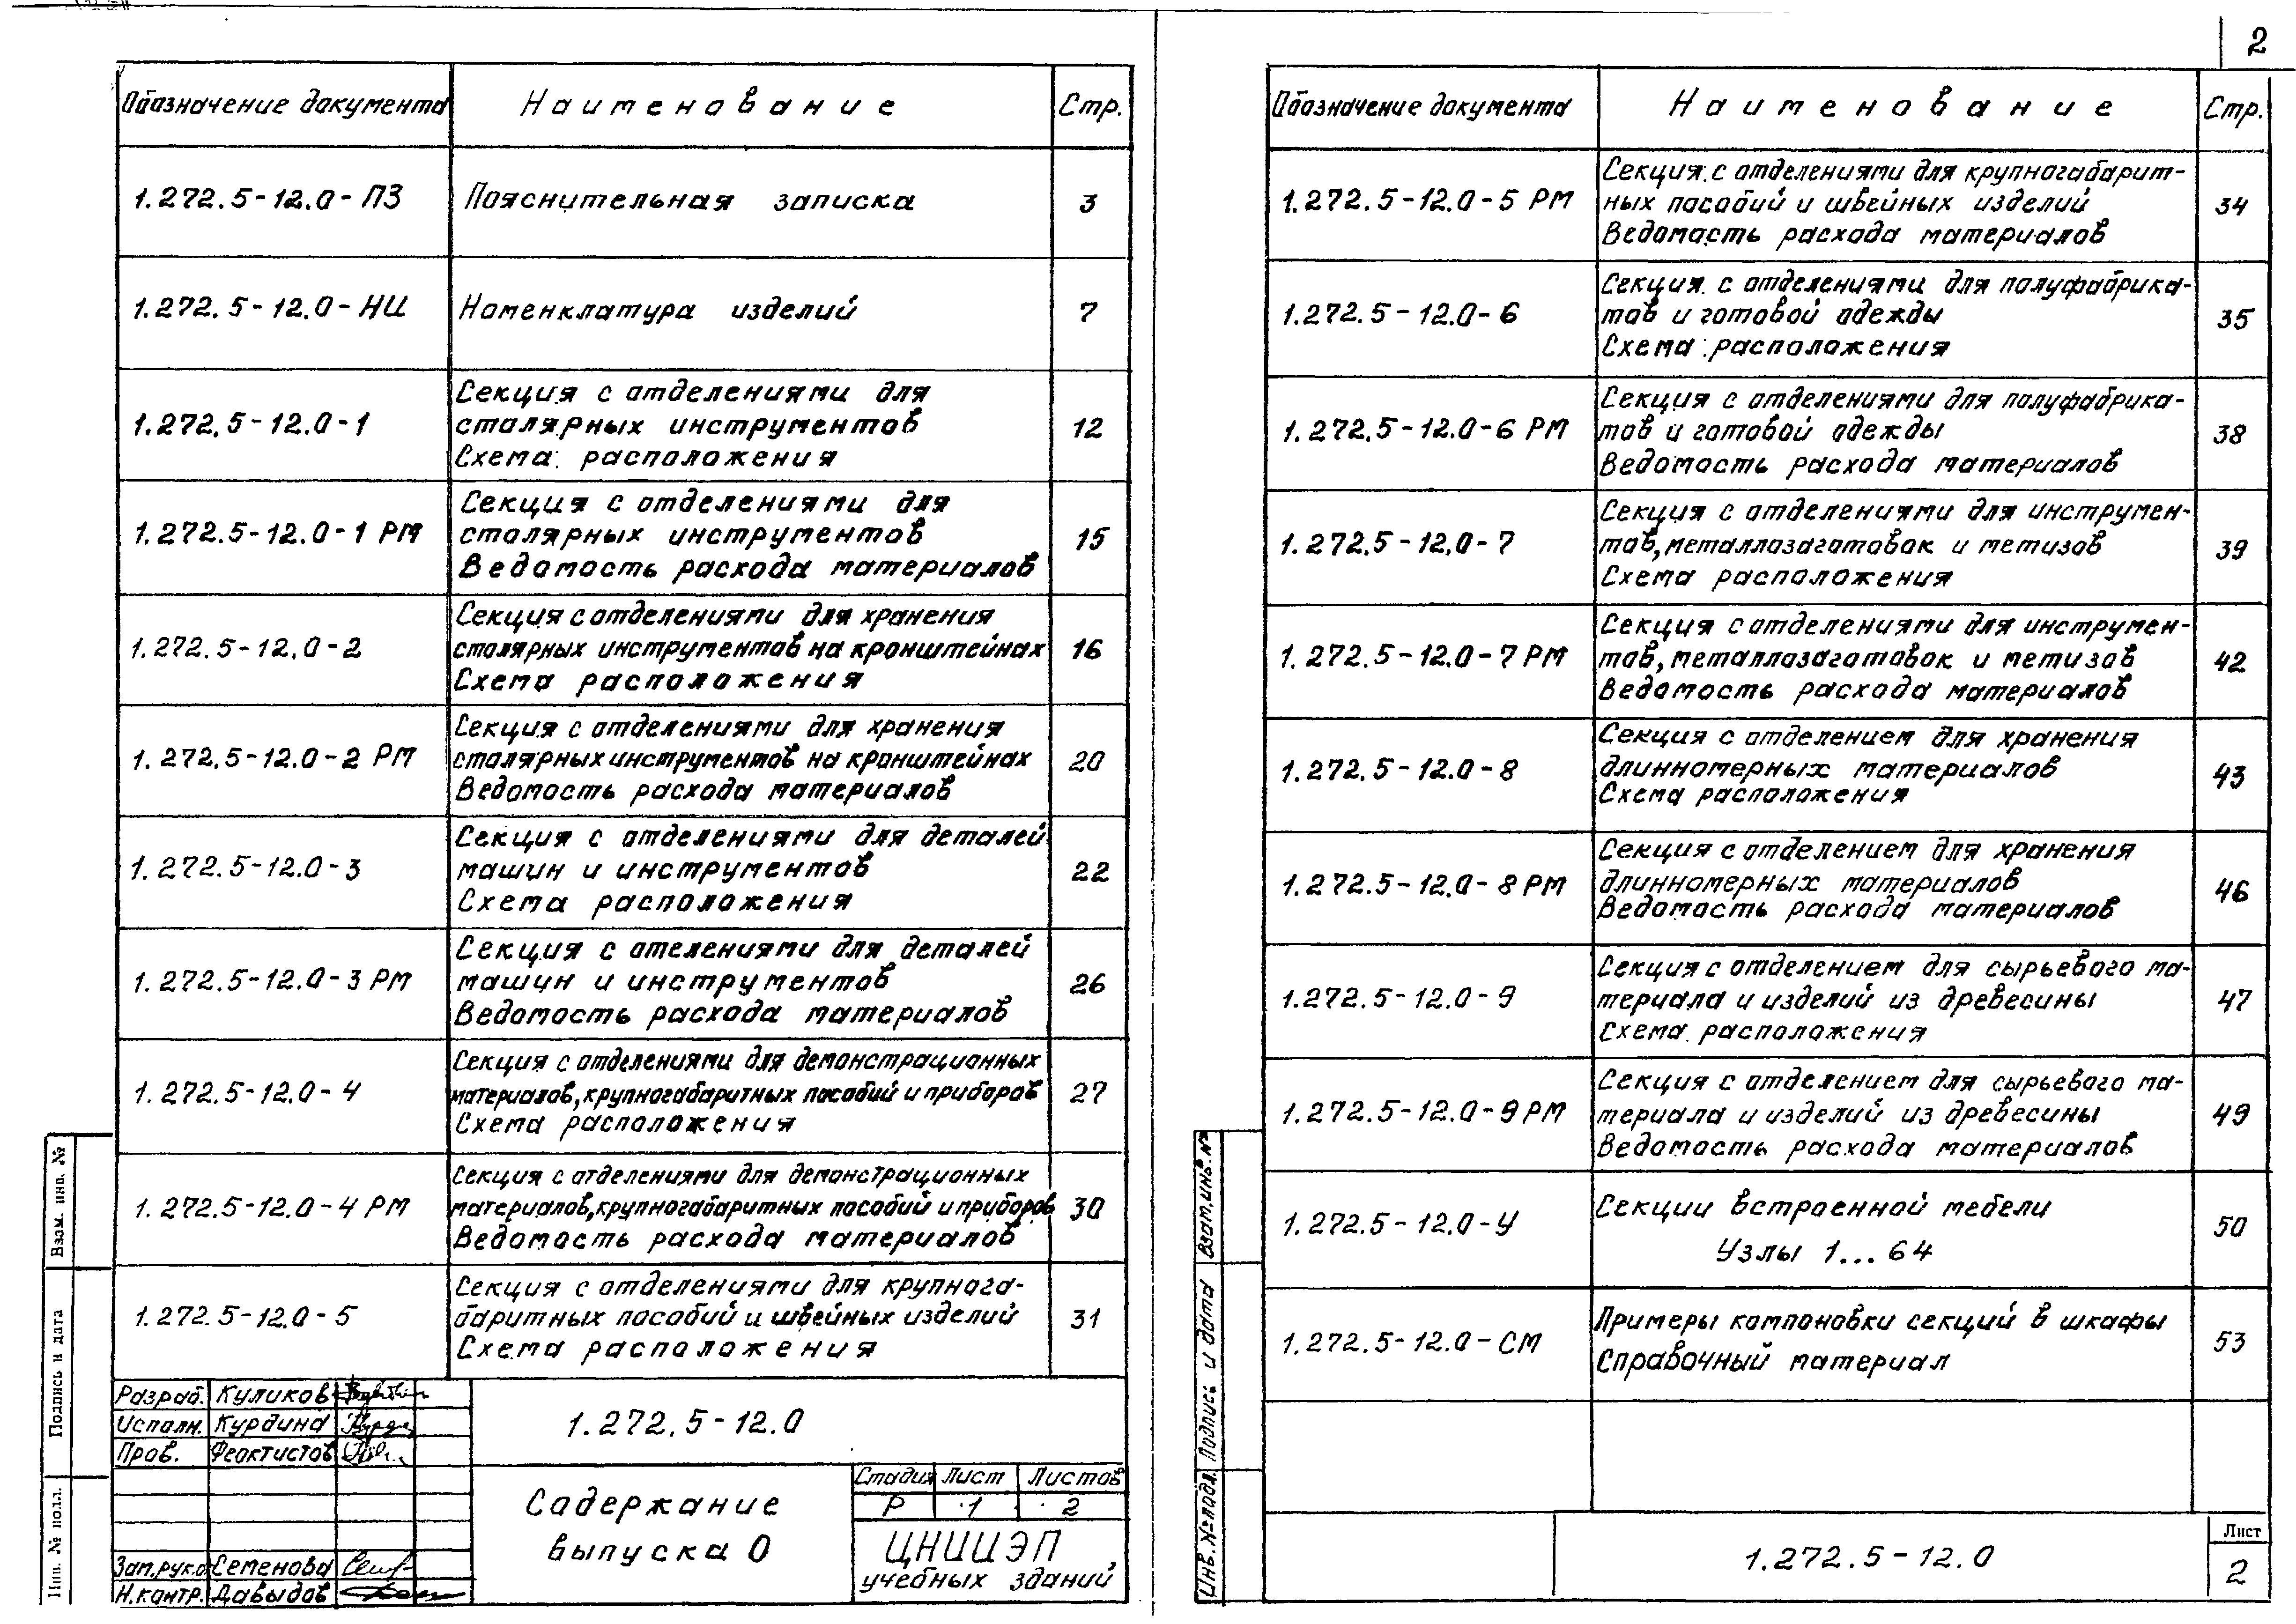 2
Обозначение документа Наименование Стр.
1.272.5-12.0-ПЗ Пояснительная записка 3
1.272.5-12.0-НИ Номенклатура изделий 7
Секция с отделениями для
1.272.5-12.0-1 столярных инструментов 12
Схема расположения
Секция с отделениями для
1.272.5-12.0-1 РМ столярных инструментов 15
Ведомость расхода материалов
Секция с отделениями для хранения
1.272.5-12.0-2 столярных инструментов на кронштейнах 16
Схема расположения
Секция с отделениями для хранения
1.272.5-12.0-2 РМ столярных инструментов на кронштейнах 20
Ведомость расхода материалов
Секция с отделениями для деталей
1.272.5-12.0-3 машин и инструментов 22
Схема расположения
Секция с отелениями для деталей
1.272.5-12.0-3 РМ машин и инструментов 26
Ведомость расхода материалов
Секция с отделениями для демонстрационных
1.272.5-12.0-4 материалов, крупногабаритных пособий и приборов 27
Схема расположения
Секция с отделениями для демонстрационных
1.272.5-12.0-4 РМ материалов, крупногабаритных пособий и приборов 30
Ведомость расхода материалов
Секция с отделениями для крупнога-
1.272.5-12.0-5 баритных пособий и швейных изделий 31
Схема расположения
Разраб. Куликов
Исполн. Курдина
Пров. Феоктистов
Зап.рук.о Семенова
Н.контр. Давыдов
1.272.5-12.0
Содержание
выпуска 0
Стадия Лист Листов
Р 1 2
ЦНИИЭП
учебных зданий
Взам. инв. №
Подпись и дата
Инв. № подл.
Обозначение документа Наименование Стр.
Секция с отделениями для крупногабарит-
1.272.5-12.0-5 РМ ных пособий и швейных изделий 34
Ведомость расхода материалов
Секция с отделениями для полуфабрика-
1.272.5-12.0-6 тов и готовой одежды 35
Схема расположения
Секция с отделениями для полуфабрика-
1.272.5-12.0-6 РМ тов и готовой одежды 38
Ведомость расхода материалов
Секция с отделениями для инструмен-
1.272.5-12.0-7 тов, металлозаготовок и метизов 39
Схема расположения
Секция с отделениями для инструмен-
1.272.5-12.0-7 РМ тов, металлозаготовок и метизов 42
Ведомость расхода материалов
Секция с отделением для хранения
1.272.5-12.0-8 длинномерных материалов 43
Схема расположения
Секция с отделением для хранения
1.272.5-12.0-8 РМ длинномерных материалов 46
Ведомость расхода материалов
Секция с отделением для сырьевого ма-
1.272.5-12.0-9 териала и изделий из древесины 47
Схема расположения
Секция с отделением для сырьевого ма-
1.272.5-12.0-9 РМ териала и изделий из древесины 49
Ведомость расхода материалов
1.272.5-12.0-У Секции встроенной мебели 50
Узлы 1...64
1.272.5-12.0-СМ Примеры компоновки секций в шкафы 53
Справочный материал
1.272.5-12.0
Лист
2
Взам.инв.№
Подпись и дата
Инв.№ подл.